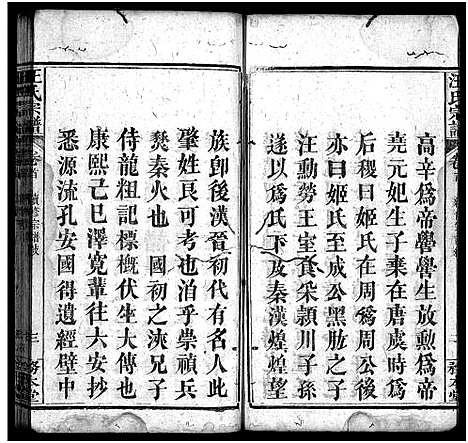 汪氏宗譜
卷首
高辛爲帝嚳嚳生放勳爲帝
堯元妃生子棄在唐虞時爲
后稷曰姬氏在周爲周公後
亦曰姬氏至成公黑肱之子
汪勳勞王室食采潁川子孫
遂以爲氏下及秦漢煌煌望
族卽後漢晉初代有名人此
肇姓艮可考也泊乎祟禎兵
燹秦火也　國初之浹兄子
侍龍粗記標概伏坐大傳也
康熙己巳澤寛輩往六安抄
悉源流孔安國得遺經壁中
汪氏宗譜
卷首
三
務本堂